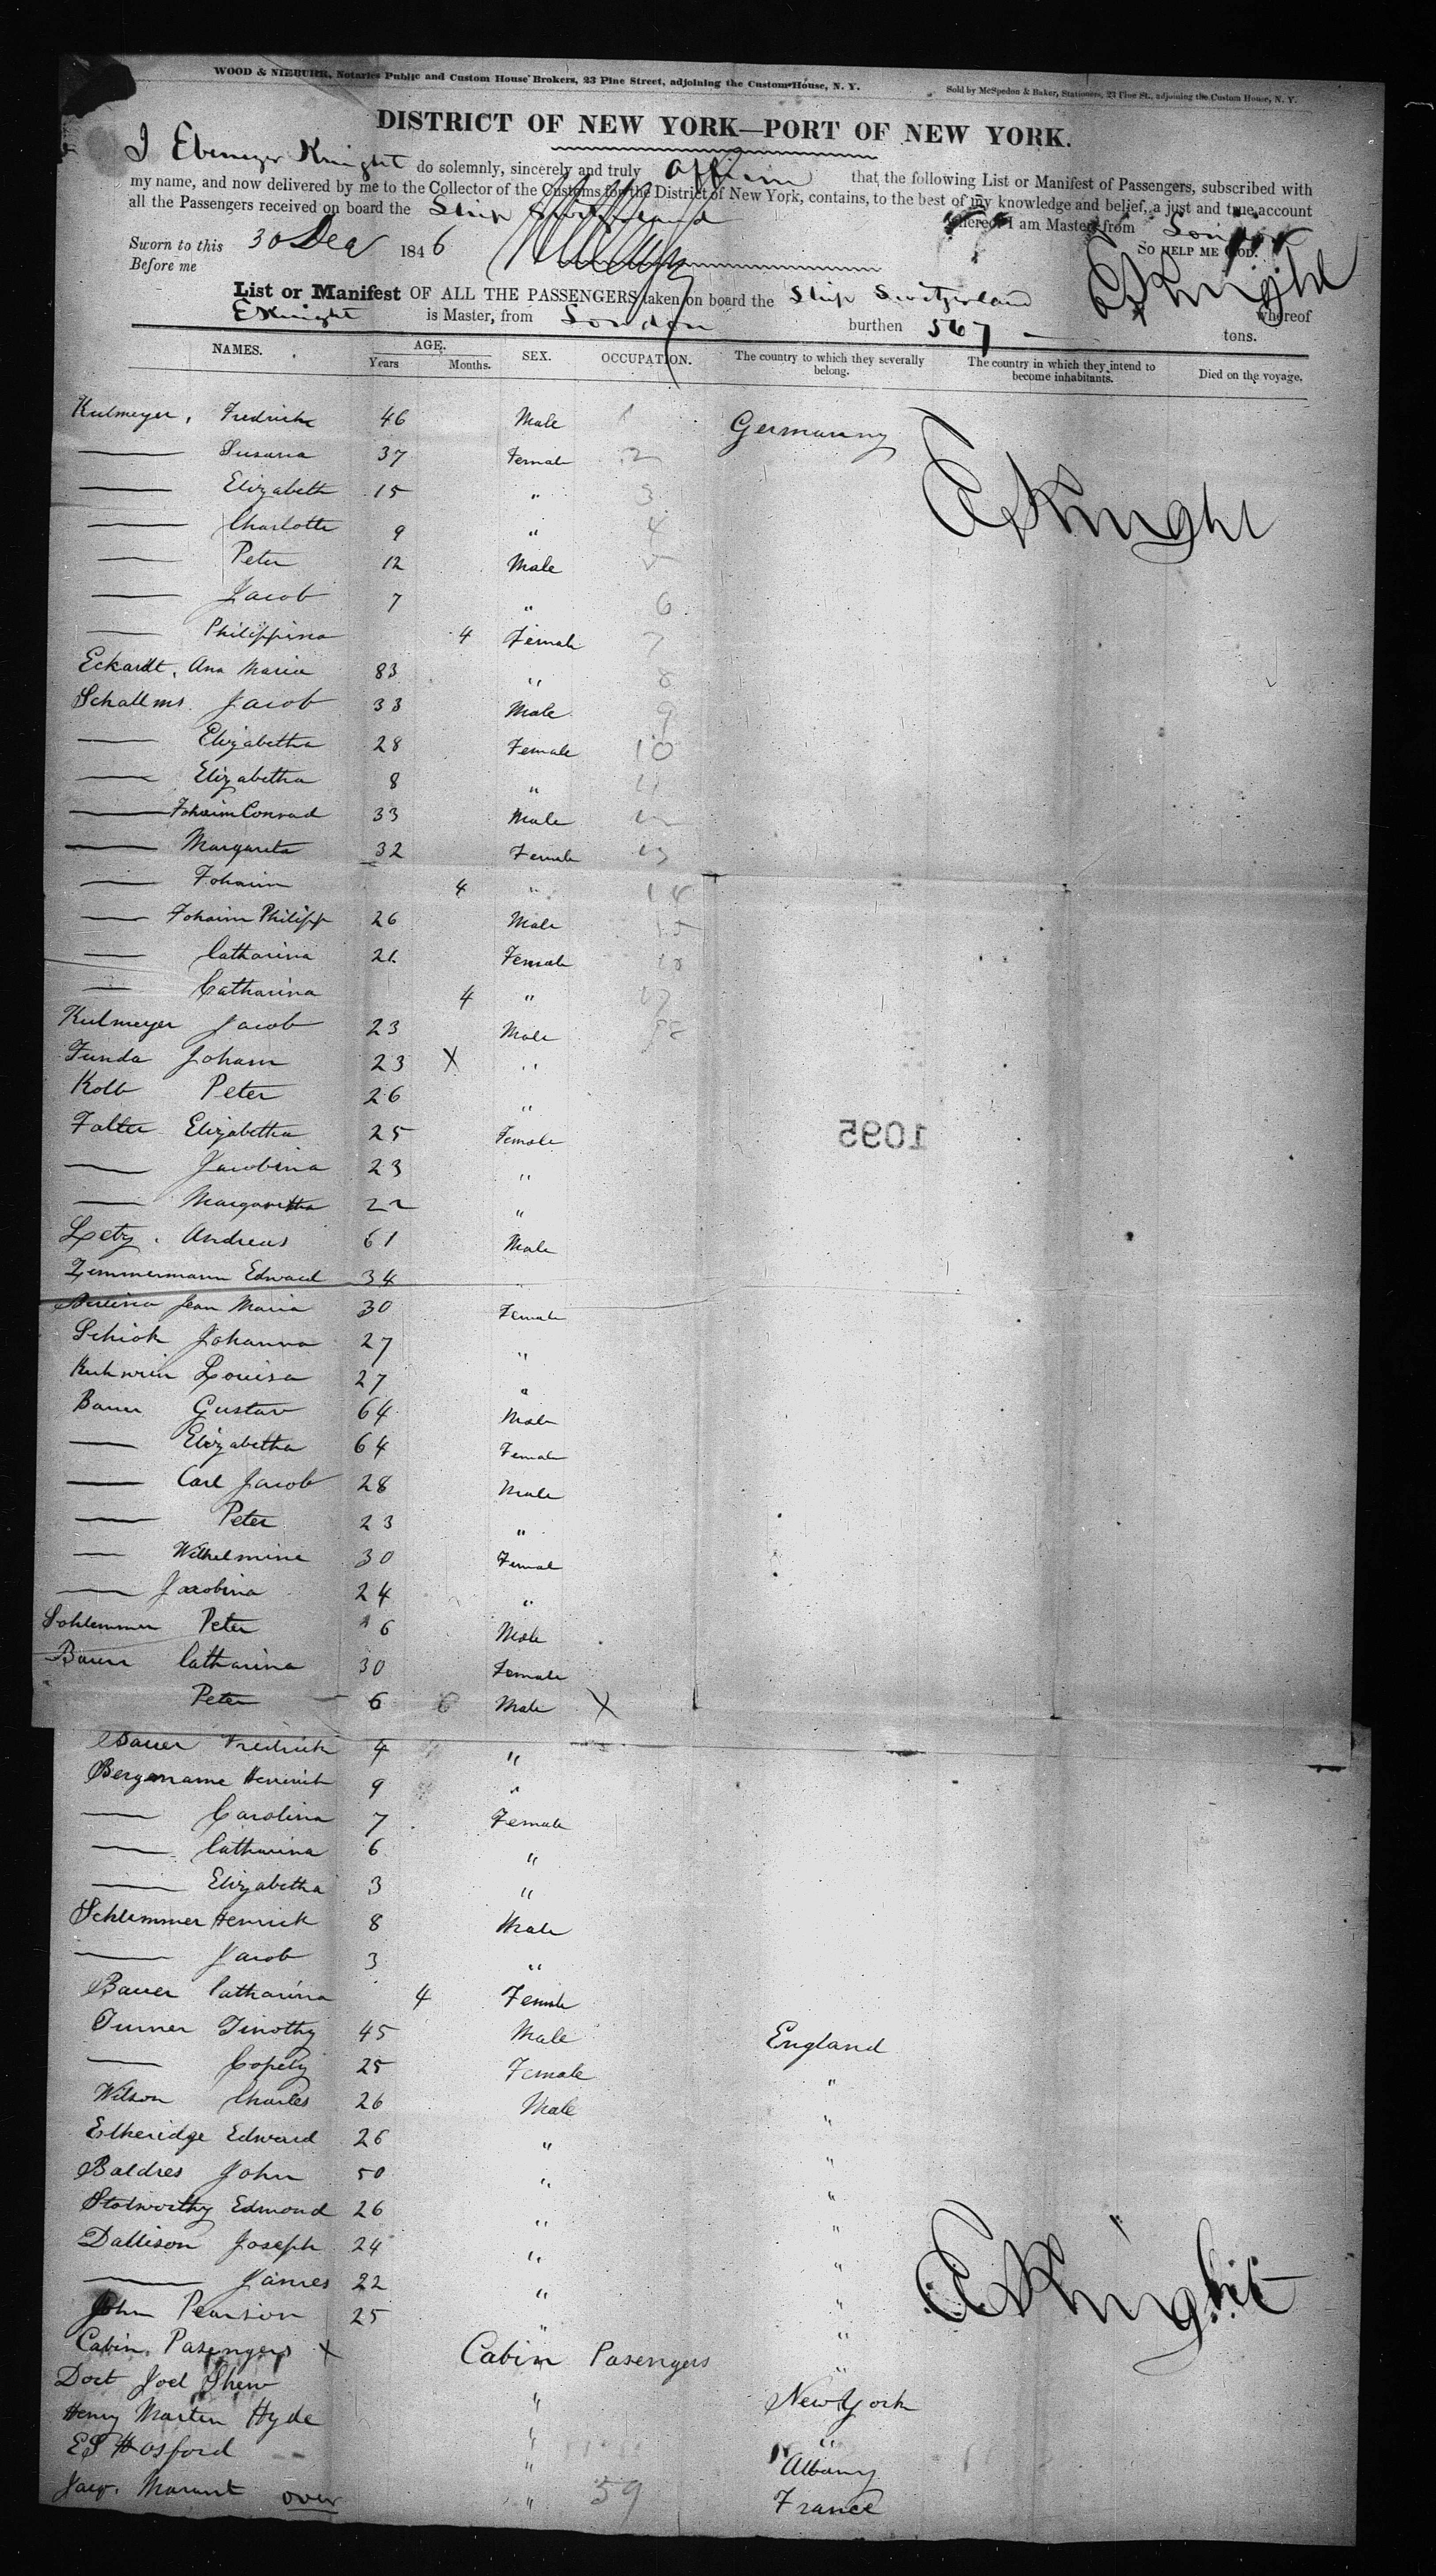 WOOD & NIEBUHR, Notaries Public and Custom House Brokers, 23 Pine Street, adjoining the Custom-House, N. Y.
Sold by McSpedon & Baker, Stationers, 23 Pine St., adjoining the Custom House, N. Y.
DISTRICT OF NEW YORK—PORT OF NEW YORK.
I Ebenezer Knight do solemnly, sincerely and truly affirm that the following List or Manifest of Passengers, subscribed with
my name, and now delivered by me to the Collector of the Customs for the District of New York, contains, to the best of my knowledge and belief, a just and true account
all the Passengers received on board the Ship Switzerland whereof I am Master from London
Sworn to this 30 Dec 1846 SO HELP ME GOD.
Before me E Knight
List or Manifest OF ALL THE PASSENGERS taken on board the Ship Switzerland whereof
E Knight is Master, from London burthen 567 tons.
NAMES. AGE. Years Months. SEX. OCCUPATION. The country to which they severally belong. The country in which they intend to become inhabitants. Died on the voyage.
Kulmeyer, Fredrick 46 Male 1 Germanny
Susana 37 Female 2
E Knight
Elizabeth 15 " 3
Charlotte 9 " 4
Peter 12 Male 5
Jacob 7 " 6
Philippina 4 Female 7
Eckardt, Ana Maria 83 " 8
Schallms Jacob 33 Male 9
Elizabetha 28 Female 10
Elizabetha 8 " 11
Johaim Conrad 33 Male 12
Margareta 32 Female 13
Johaim 4 " 14
Johaim Philipp 26 Male 15
Catharina 21 Female 16
Catharina 4 " 17
Kulmeyer Jacob 23 Male 18
Funda Joham 23 X "
Kolb Peter 26 "
Falter Elizabetha 25 Female
1095
Jacobina 23 "
Margaretha 22 "
Letz, Andreas 61 Male
Zimmermann Edward 34
Jean Maria 30 Female
Schick Johanna 27 "
Louisa 27 "
Bauer Gustav 64 Male
Elizabetha 64 Female
Carl Jacob 28 Male
Peter 23 "
Wilhelmine 30 Female
Jacobina 24 "
Schlemmer Peter 6 Male
Bauer Catharina 30 Female
Peter 6 6 Male X
Bauer Fredrick 4 "
Bergename Henrick 9 "
Carolina 7 Female
Catharina 6 "
Elizabetha 3 "
Schlemmer Henrick 8 Male
Jacob 3 "
Bauer Catharina 4 Female
Turner Timothy 45 Male England
Copely 25 Female "
Wilson Charles 26 Male "
Etheridge Edward 26 " "
Baldres John 50 " "
Stolworthy Edmond 26 " "
Dallison Joseph 24 " "
E Knight
James 22 " "
John Pearson 25 " "
Cabin Pasengers X Cabin Pasengers "
Doct Joel Shew " New York
Henry Martin Hyde " "
ES Hosford " Albany
Jacq. Marant over " 59 France